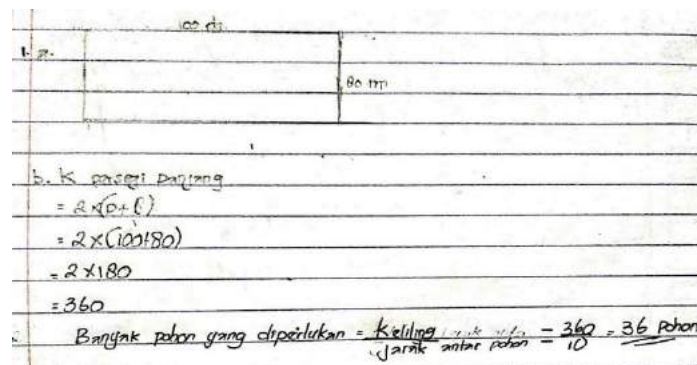 100 m
1. a.
80 m
b. K persegi panjang
= 2 x (p + l)
= 2 x (100+80)
= 2 x 180
= 360
Banyak pohon yang diperlukan = Keliling / Jarak antar pohon = 360 / 10 = 36 pohon